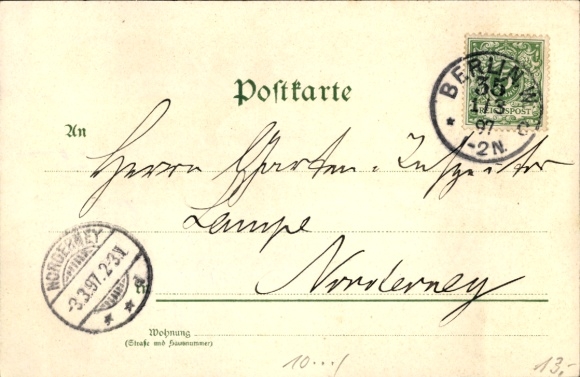 Postkarte
BERLIN W
35
1/3
97
1-2N.
REICHSPOST
An
Herrn Garten-Inspektor
Lampe
Norderney
NORDERNEY
3.3.97.2-3N.
* *
Wohnung
(Straße und Hausnummer)
10.../
13,-